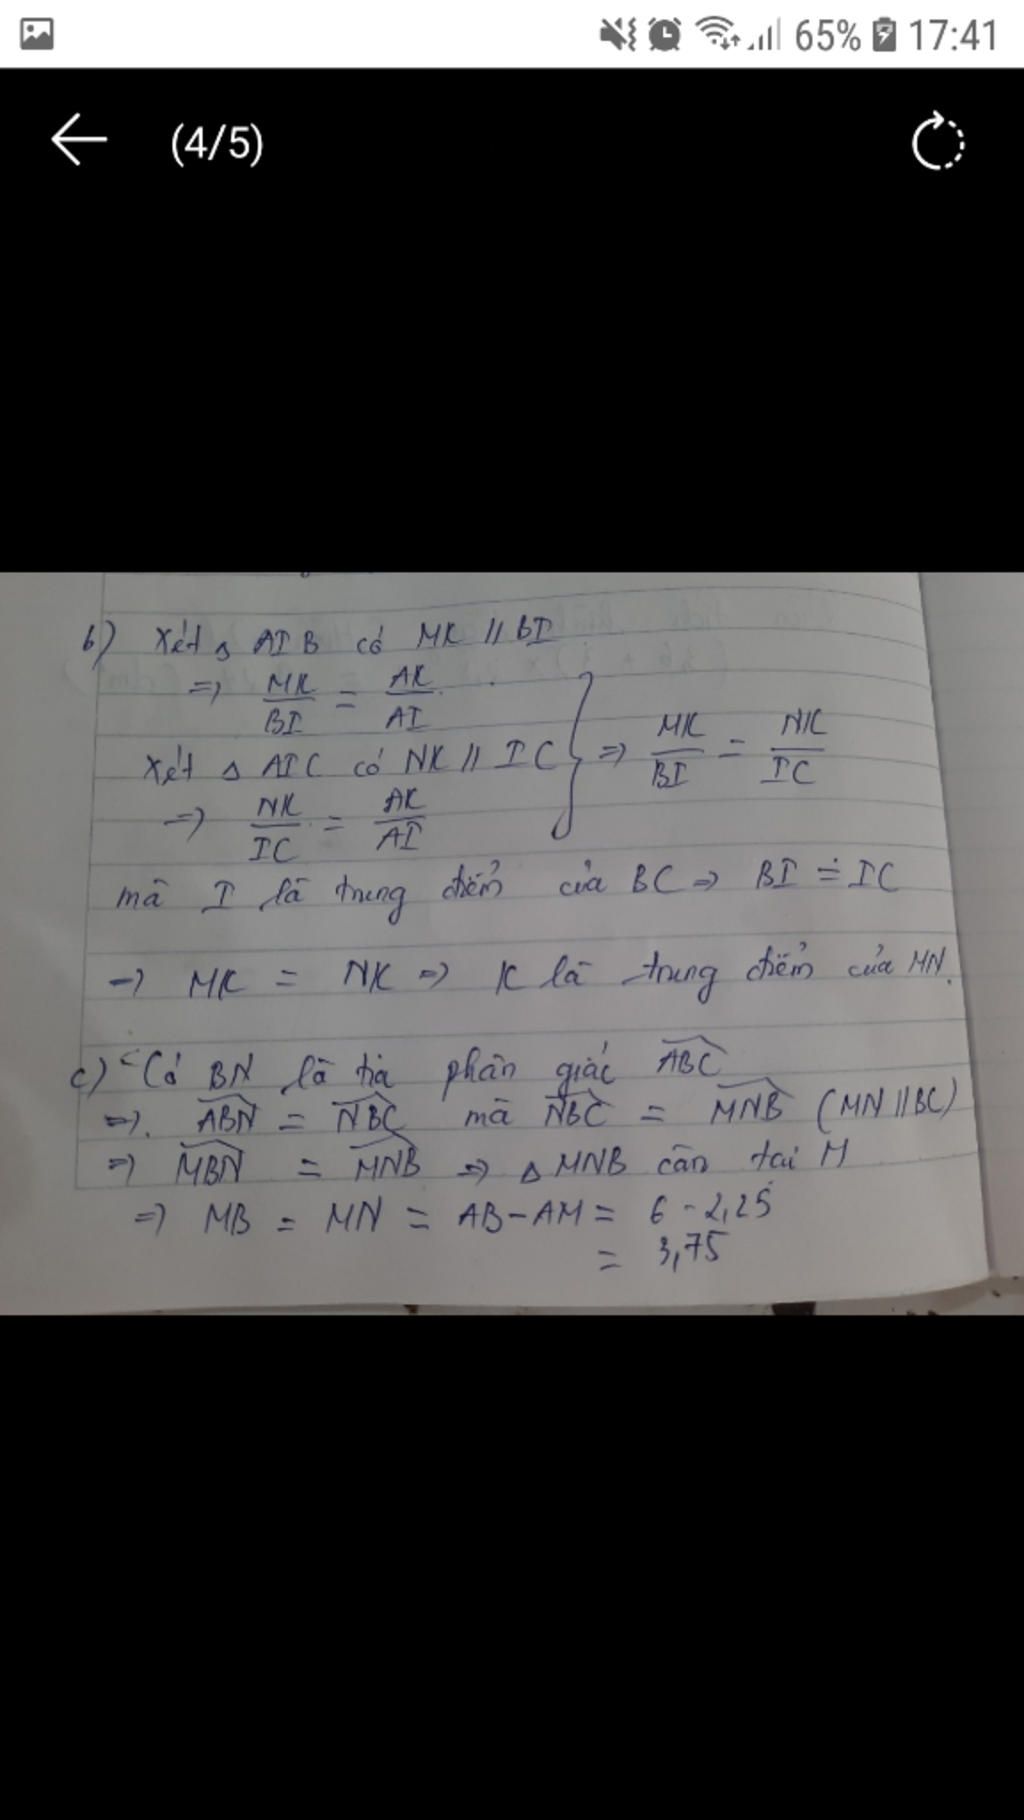 65% 17:41
(4/5)
b) Xét Δ AIB có MK // BI
=> MK/BI = AK/AI
Xét Δ AIC có NK // IC => MK/BI = NK/IC
=> NK/IC = AK/AI
mà I là trung điểm của BC => BI = IC
=> MK = NK => K là trung điểm của MN.
c) Có BN là tia phân giác ABC
=> ABN = NBC mà NBC = MNB (MN // BC)
=> MBN = MNB => Δ MNB cân tại M
=> MB = MN = AB - AM = 6 - 2,25
= 3,75